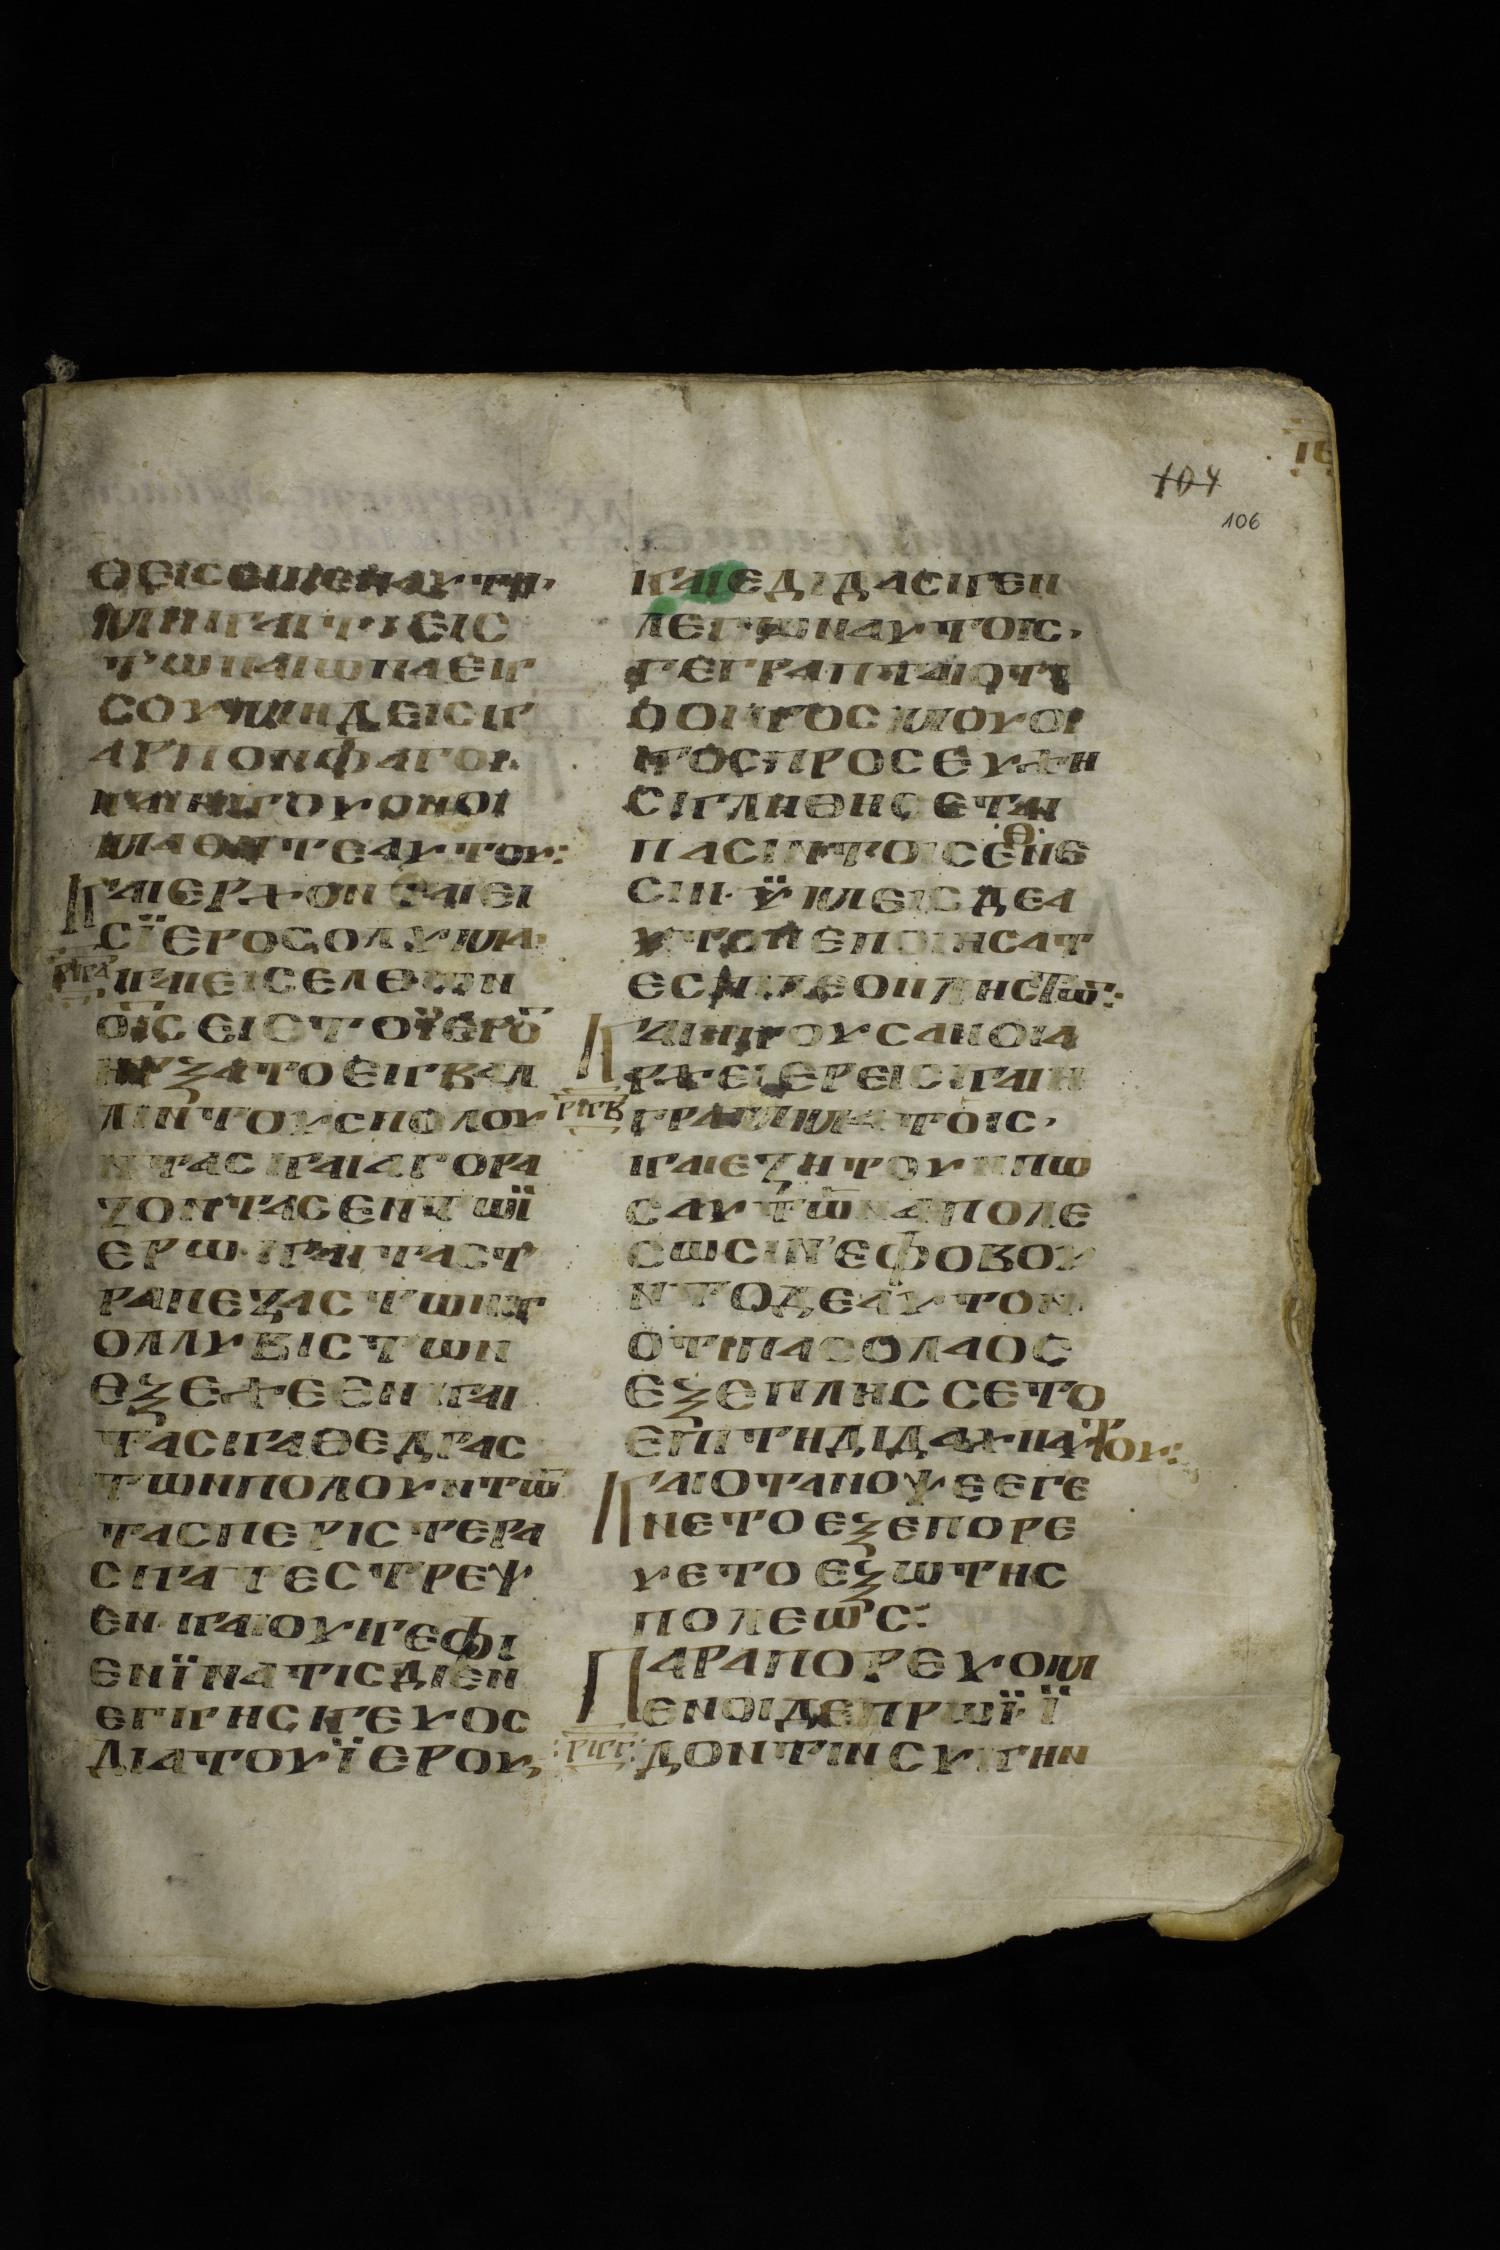 ΘΕΙϹΕΙΠΕΝΑΥΤΗ·
ΜΗΚΑΙΤΙΕΙϹ
ΤΩΝΑΙΩΝΑΕΚ
ϹΟΥΜΗΔΕΙϹΚ
ΑΡΠΟΝΦΑΓΟΙ·
ΚΑΙΗΚΟΥΟΝΟΙ
ΜΑΘΗΤΕΑΥΤΟΥ:
ΚΑΙΕΡΧΟΝΤΑΙΕΙ
ϹΪΕΡΟϹΟΛΥΜΑ·
ΡΚΑ ΚΑΙΕΙϹΕΛΘΩΝ
ΟΙ̅Ϲ̅ΕΙϹΤΟΪΕΡΟ̅
ΗΡΞΑΤΟΕΚΒΑΛ
ΛΙΝΤΟΥϹΠΟΛΟΥ
ΝΤΑϹΚΑΙΑΓΟΡΑ
ΖΟΝΤΑϹΕΝΤΩΪ
ΕΡΩ·ΚΑΙΤΑϹΤ
ΡΑΠΕΖΑϹΤΩΝΚ
ΟΛΛΥΒΙϹΤΩΝ
ΕΞΕΧΕΕΝΚΑΙ
ΤΑϹΚΑΘΕΔΡΑϹ
ΤΩΝΠΟΛΟΥΝΤΩ̅
ΤΑϹΠΕΡΙϹΤΕΡΑ
ϹΚΑΤΕϹΤΡΕΨ
ΕΝ·ΚΑΙΟΥΚΕΦΙ
ΕΝΪΝΑΤΙϹΔΙΕΝ
ΕΓΚΗϹΚΕΥΟϹ
ΔΙΑΤΟΥΪΕΡΟΥ·
104
106
ΚΑΙΕΔΙΔΑϹΚΕΝ
ΛΕΓΩΝΑΥΤΟΙϹ·
ΓΕΓΡΑΠΤΑΙΟΤΙ
ΟΟΙΚΟϹΜΟΥΟΙ
ΚΟϹΠΡΟϹΕΥΧΗ
ϹΚΛΗΘΗϹΕΤΑΙ
ΠΑϹΙΝΤΟΙϹΕΘΝΕ
ϹΙΝ·ΫΜΕΙϹΔΕΑ
ΥΤΟΝΕΠΟΙΗϹΑΤ
ΕϹΠΙΛΕΟΝΛΗϹΤΩ̅:
ΚΑΙΗΚΟΥϹΑΝΟΙΑ
ΡΧΕΙΕΡΕΙϹΚΑΙΗ
ΡΚΒ ΓΡΑΜΜΑΤΟΙϹ·
ΚΑΙΕΖΗΤΟΥΝΠΩ
ϹΑΥΤΩΝΑΠΟΛΕ
ϹΩϹΙΝ·ΕΦΟΒΟΥ
ΝΤΟΔΕΑΥΤΟΝ
ΟΤΙΠΑϹΟΛΑΟϹ
ΕΞΕΠΛΗϹϹΕΤΟ
ΕΠΙΤΗΔΙΔΑΧΗΑΥΤΟΥ:
ΚΑΙΟΤΑΝΟΨΕΕΓΕ
ΝΕΤΟΕΞΕΠΟΡΕ
ΥΕΤΟΕΞΩΤΗϹ
ΠΟΛΕΩϹ:
ΠΑΡΑΠΟΡΕΥΟΜ
ΕΝΟΙΔΕΠΡΩΪ·Ϊ
ΡΚΓ ΔΟΝΤΙΝϹΥΚΗΝ